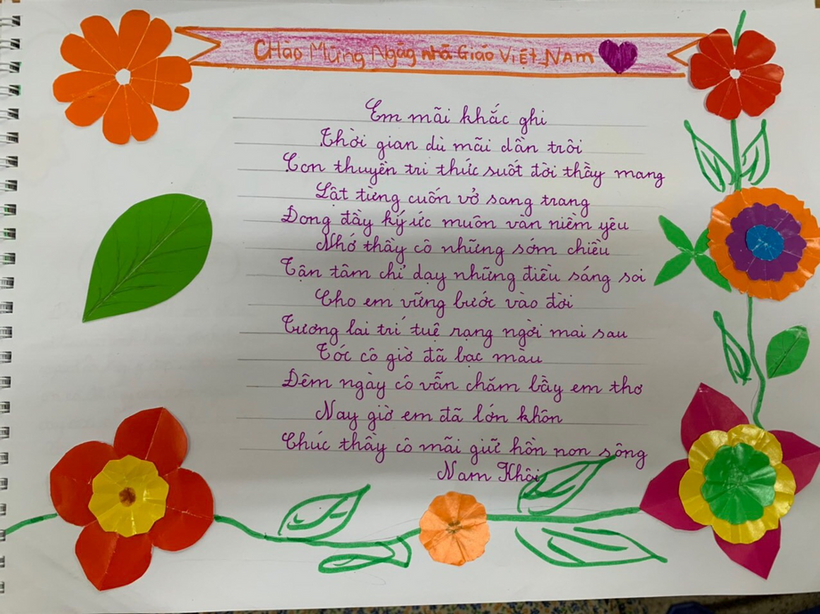 Chào Mừng Ngày nhà Giáo Việt Nam
Em mãi khắc ghi
Thời gian dù mãi dần trôi
Con thuyền tri thức suốt đời thầy mang
Lật từng cuốn vở sang trang
Đong đầy ký ức muôn vàn niềm yêu
Nhớ thầy cô những sớm chiều
Tận tâm chỉ dạy những điều sáng soi
Cho em vững bước vào đời
Tương lai trí tuệ rạng ngời mai sau
Tóc cô giờ đã bạc màu
Đêm ngày cô vẫn chăm bầy em thơ
Nay giờ em đã lớn khôn
Chúc thầy cô mãi giữ hồn non sông
Nam Khôi